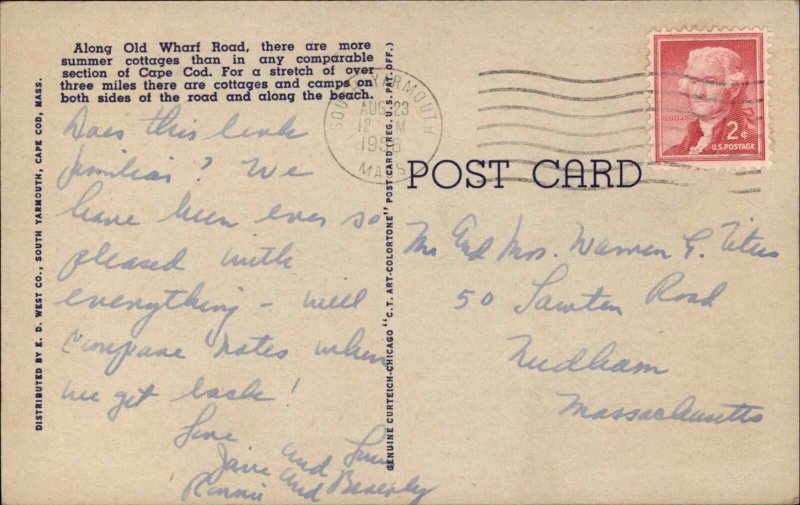 Along Old Wharf Road, there are more
summer cottages than in any comparable
section of Cape Cod. For a stretch of over
three miles there are cottages and camps on
both sides of the road and along the beach.
DISTRIBUTED BY E. D. WEST CO., SOUTH YARMOUTH, CAPE COD, MASS.
Does this look
familiar? We
have been ever so
pleased with
everything – will
compare notes when
we get back!
Love
Jane and
Ronnie and Beverly
GENUINE CURTEICH-CHICAGO "C.T. ART-COLORTONE" POST CARD (REG. U.S. PAT. OFF.)
SOUTH YARMOUTH
AUG 23
12 M
1956
MASS.
JEFFERSON
2¢
U.S. POSTAGE
POST CARD
Mr and Mrs. Warren G. Titus
50 Sawten Road
Needham
Massachusetts